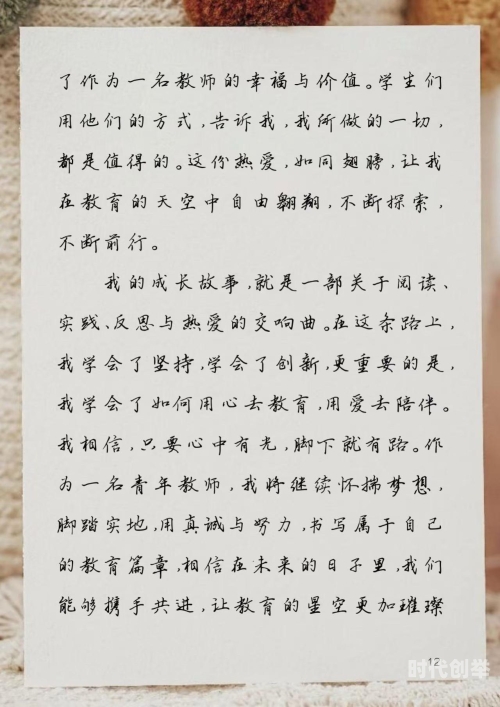 了作为一名教师的幸福与价值。学生们
用他们的方式,告诉我,我所做的一切,
都是值得的。这份热爱,如同翅膀,让我
在教育的天空中自由翱翔,不断探索,
不断前行。
我的成长故事,就是一部关于阅读、
实践、反思与热爱的交响曲。在这条路上,
我学会了坚持,学会了创新,更重要的是,
我学会了如何用心去教育,用爱去陪伴。
我相信,只要心中有光,脚下就有路。作
为一名青年教师,我将继续怀揣梦想,
脚踏实地,用真诚与努力,书写属于自己
的教育篇章,相信在未来的日子里,我们
能够携手共进,让教育的星空更加璀璨
12
时代创举